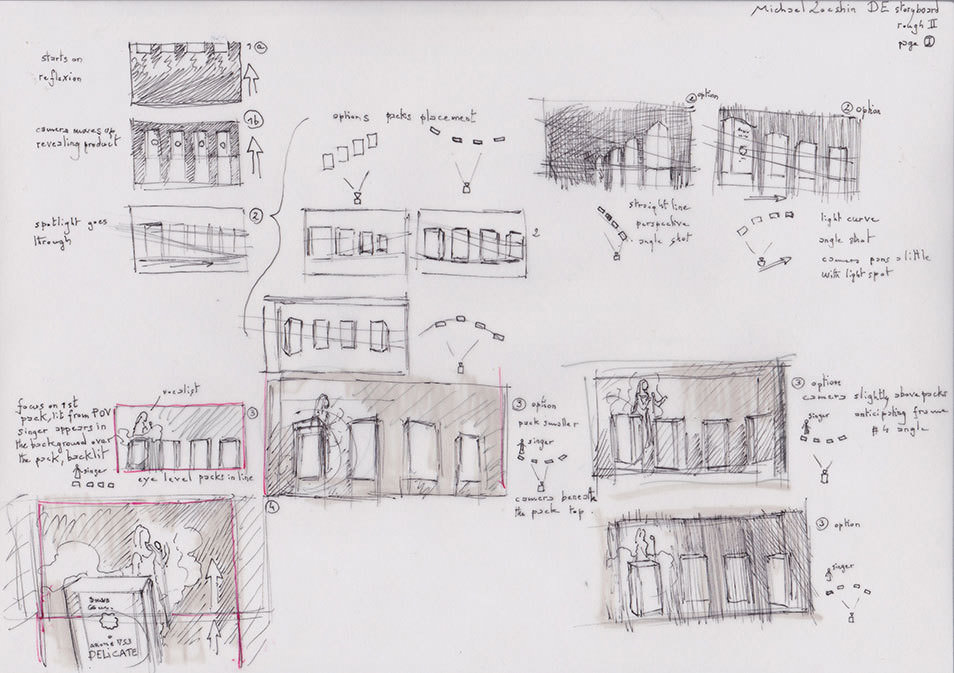 Michael Loeshin DE storyboard
rough II
page 1
starts on
reflexion
1 a
camera moves up
revealing product
1b
spotlight goes
through
2
options packs placement
2
2 option
straight line
perspective
angle shot
2 option
light curve
angle shot
camera pans a little
with light spot
vocalist
focus on 1st
pack, lit from POV
singer appears in
the background over
the pack, backlit
singer
3
eye level packs in line
3 option
pack smaller
singer
camera beneath
the pack top.
3 option
camera slightly above packs
anticipating frame
#4 angle
singer
3 option
singer
4
DELICATE